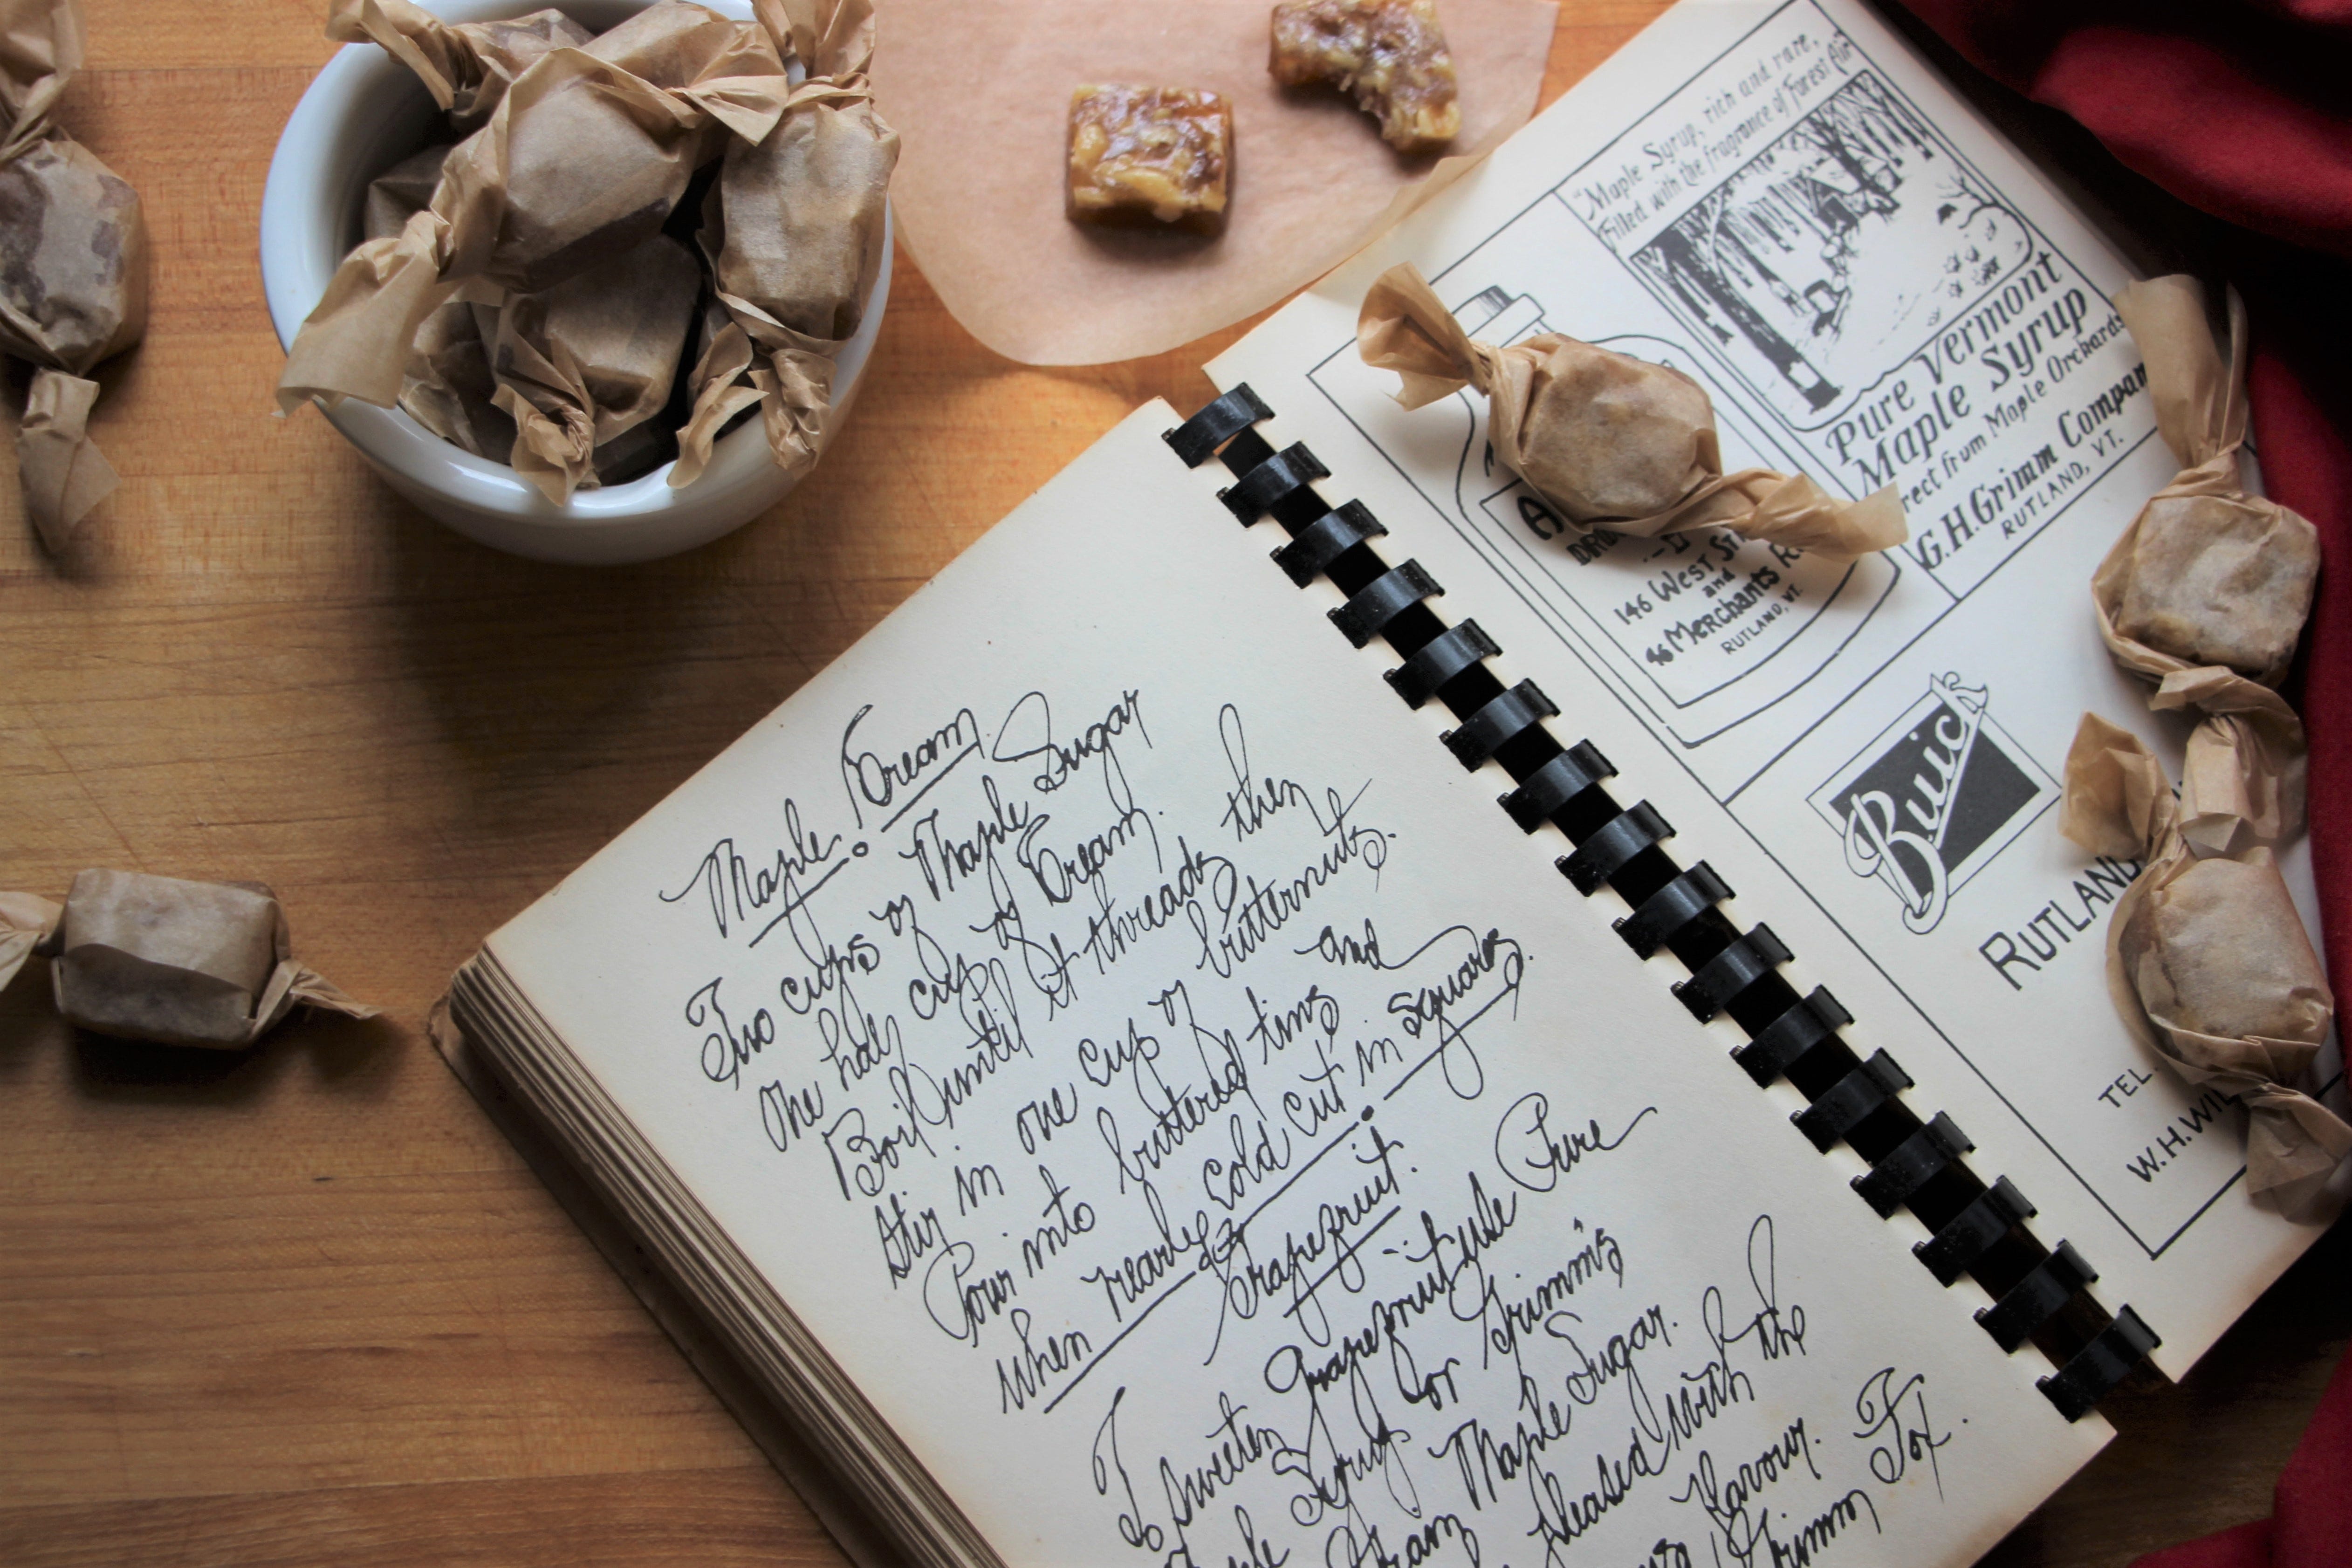 Maple Cream
Two cups of Maple Sugar
One half cup of Cream.
Boil until it threads then
Stir in one cup of butternuts.
Pour into buttered tins and
when nearly cold cut in squares.
Grapefruit.
To sweeten Grapefruit use Pure
Syrup or Grimm's
Cream Maple Sugar.
pleased with the
Flavour.
Grimm Fox.
"Maple Syrup, rich and rare,
Filled with the fragrance of Forest Air"
Pure Vermont
Maple Syrup
from Maple Orchards
G.H. Grimm Compan
RUTLAND, VT.
146 West St
and
46 Merchants
RUTLAND, VT.
Buick
RUTLAND
TEL.
W.H.